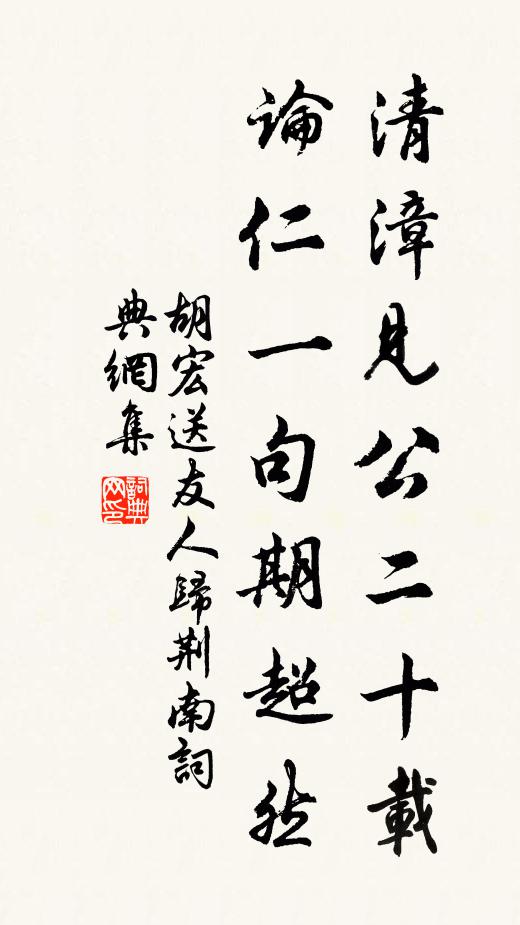 清漳見公二十載
論仁一句期超然
胡宏送友人歸荆南詞
典網集
詞典
网印